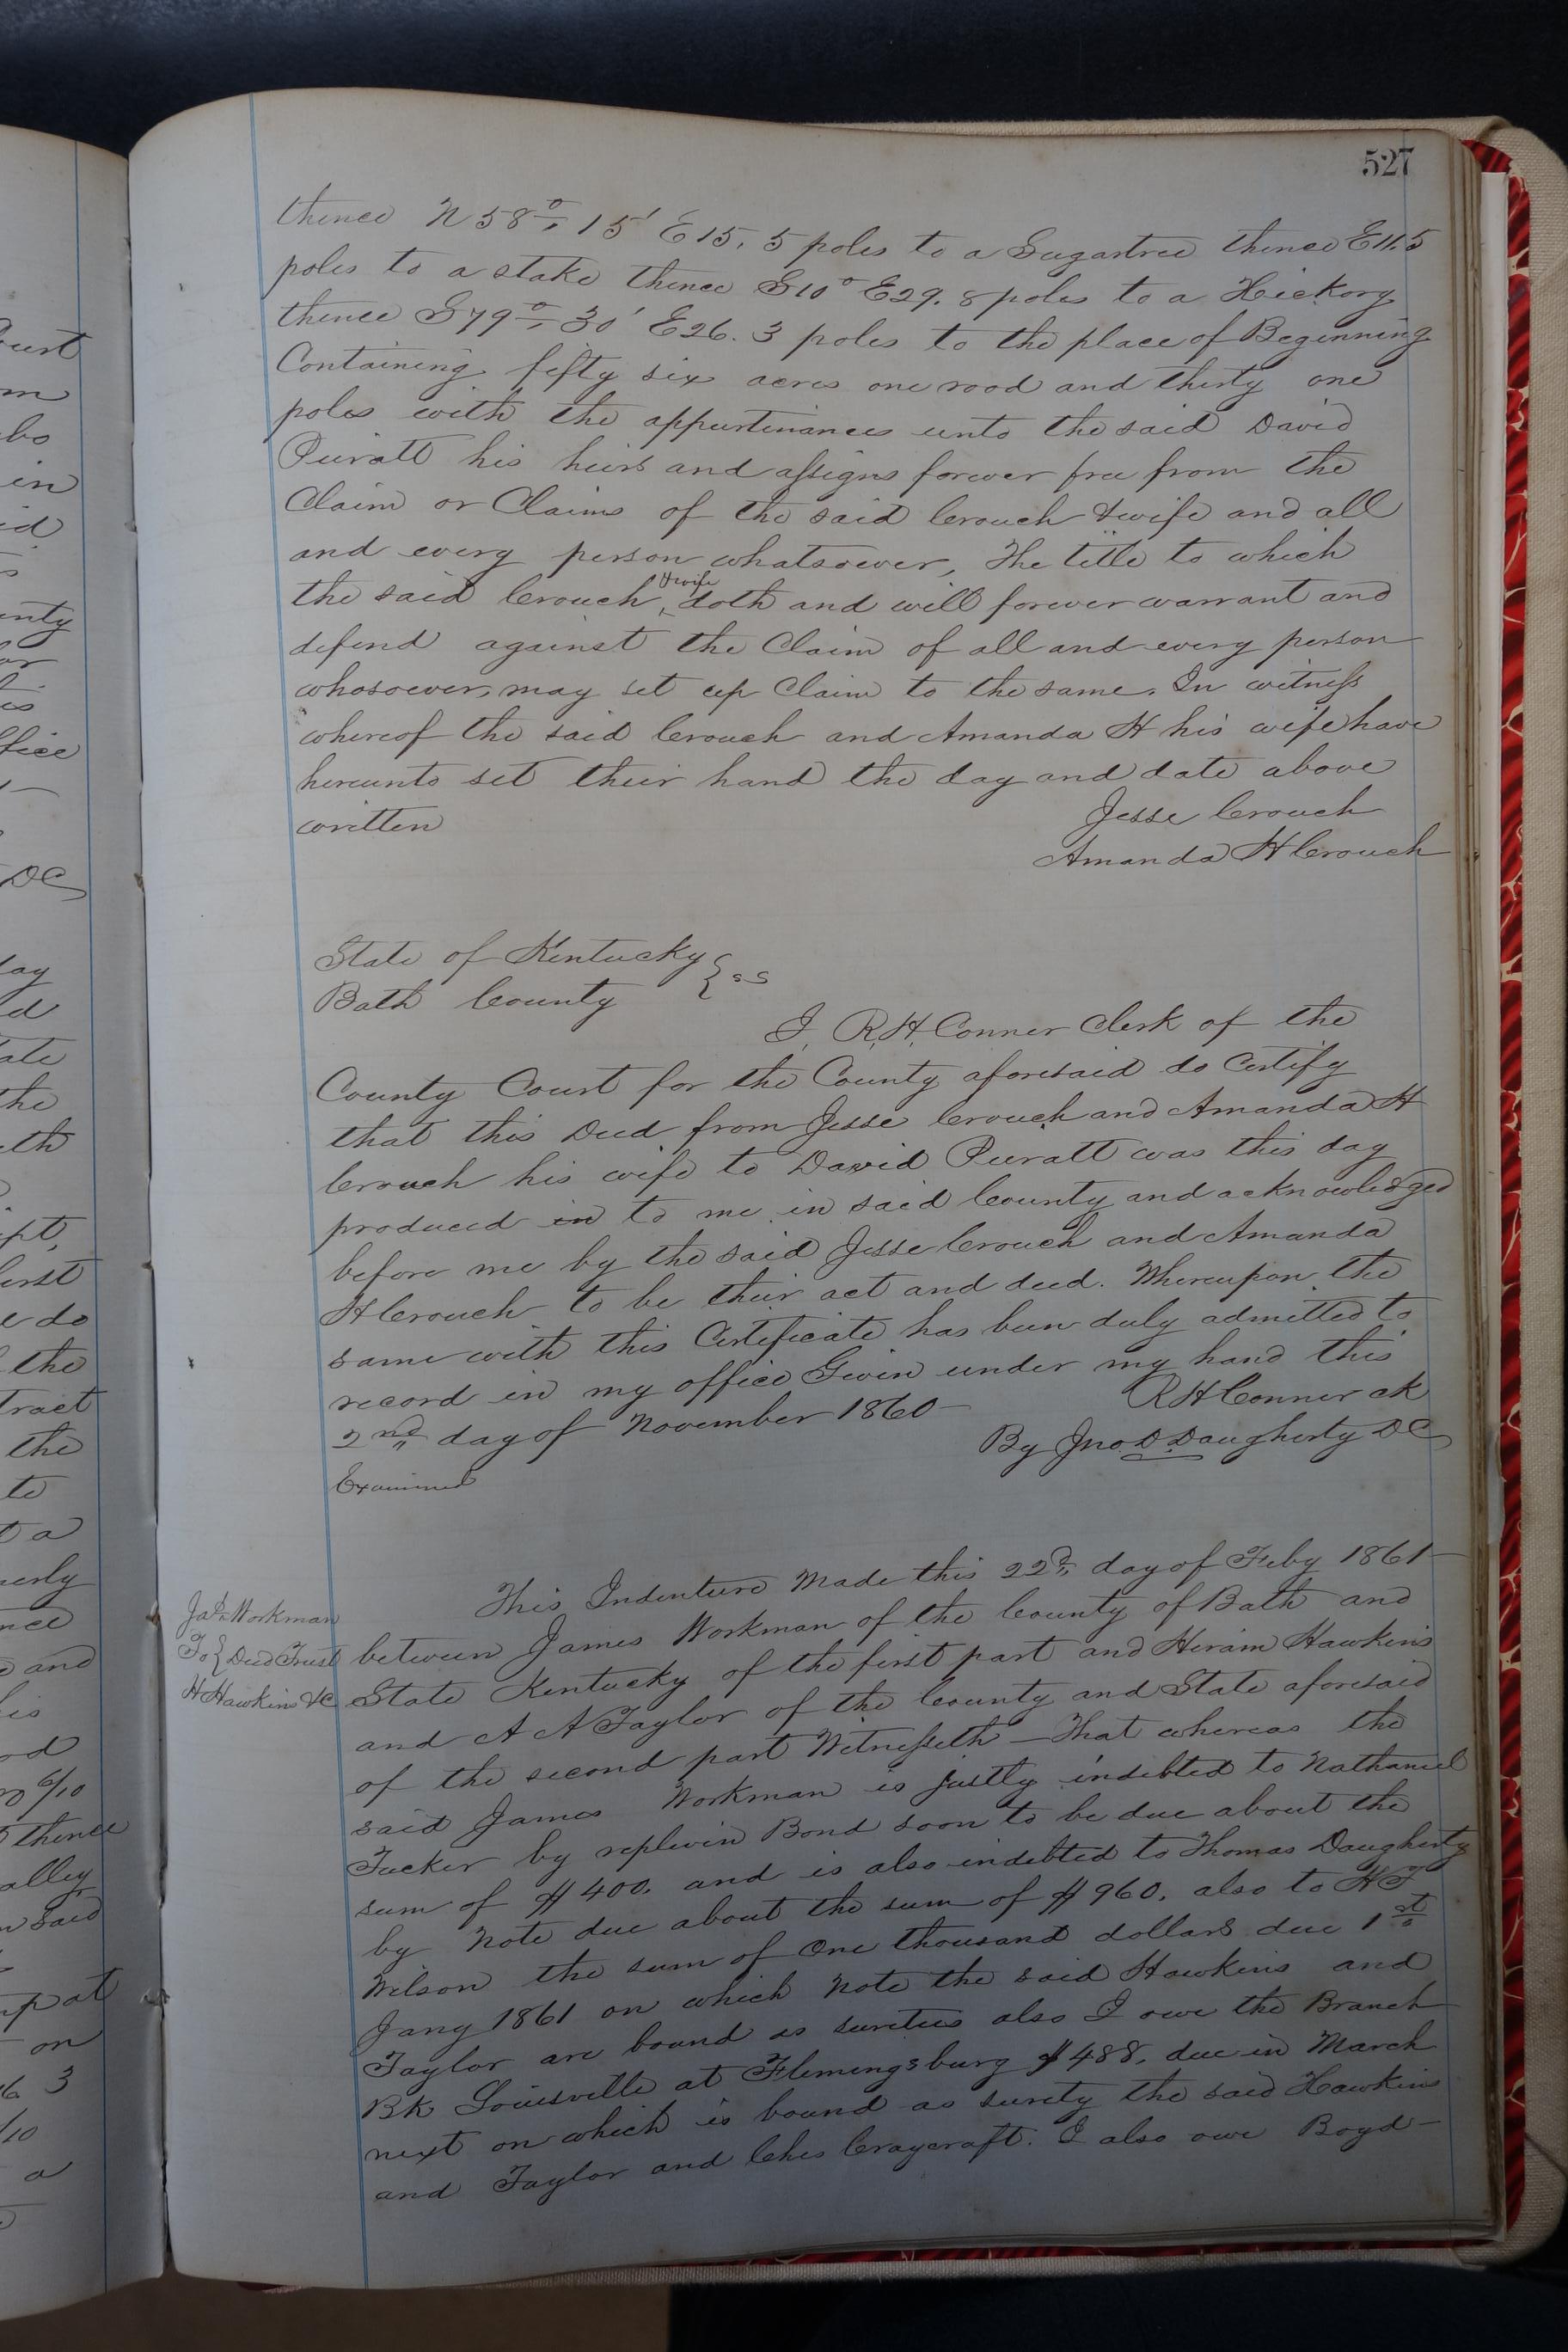 527
thence N 58° 15' E 15.5 poles to a Sugartree thence E 11.5
poles to a stake thence S 10° E 29.8 poles to a Hickory
thence S 79° 30' E 26.3 poles to the place of Beginning
Containing fifty six acres one rood and thirty one
poles with the appurtinances unto the said David
Puratt his heirs and assigns forever free from the
Claim or Claims of the said Crouch & wife and all
and every person whatsoever, The title to which
the said Crouch, & wife doth and will forever warrant and
defend against the Claim of all and every person
whosoever may set up Claim to the same. In witness
whereof the said Crouch and Amanda H his wife have
hereunto set their hand the day and date above
written
Jesse Crouch
Amanda H Crouch
State of Kentucky } ss
Bath County
I, R. H. Conner Clerk of the
County Court for the County aforesaid do Certify
that this Deed from Jesse Crouch and Amanda H
Crouch his wife to David Puratt was this day
produced in to me in said County and acknowledged
before me by the said Jesse Crouch and Amanda
H Crouch to be their act and deed. Whereupon the
same with this Certificate has been duly admitted to
record in my office Given under my hand this
2nd day of November 1860
R H Conner Ck
By Jno. D. Daugherty DC
Examined
This Indenture Made this 22d day of Feby 1861
Jas Workman
To } Deed Trust
H Hawkins &c
between James Workman of the County of Bath and
State Kentucky of the first part and Hiram Hawkins
and A N Taylor of the County and State aforesaid
of the second part Witnesseth – That whereas the
said James Workman is justly indebted to Nathaniel
Tucker by replevin Bond soon to be due about the
sum of $400. and is also indebted to Thomas Daugherty
by Note due about the sum of $960. also to H F
Wilson the sum of One thousand dollars due 1st
Jany 1861 on which Note the said Hawkins and
Taylor are bound as sureties also I owe the Branch
BK Louisville at Flemingsburg $488. due in March
next on which is bound as surety the said Hawkins
and Taylor and Ches Craycraft. I also owe Boyd –